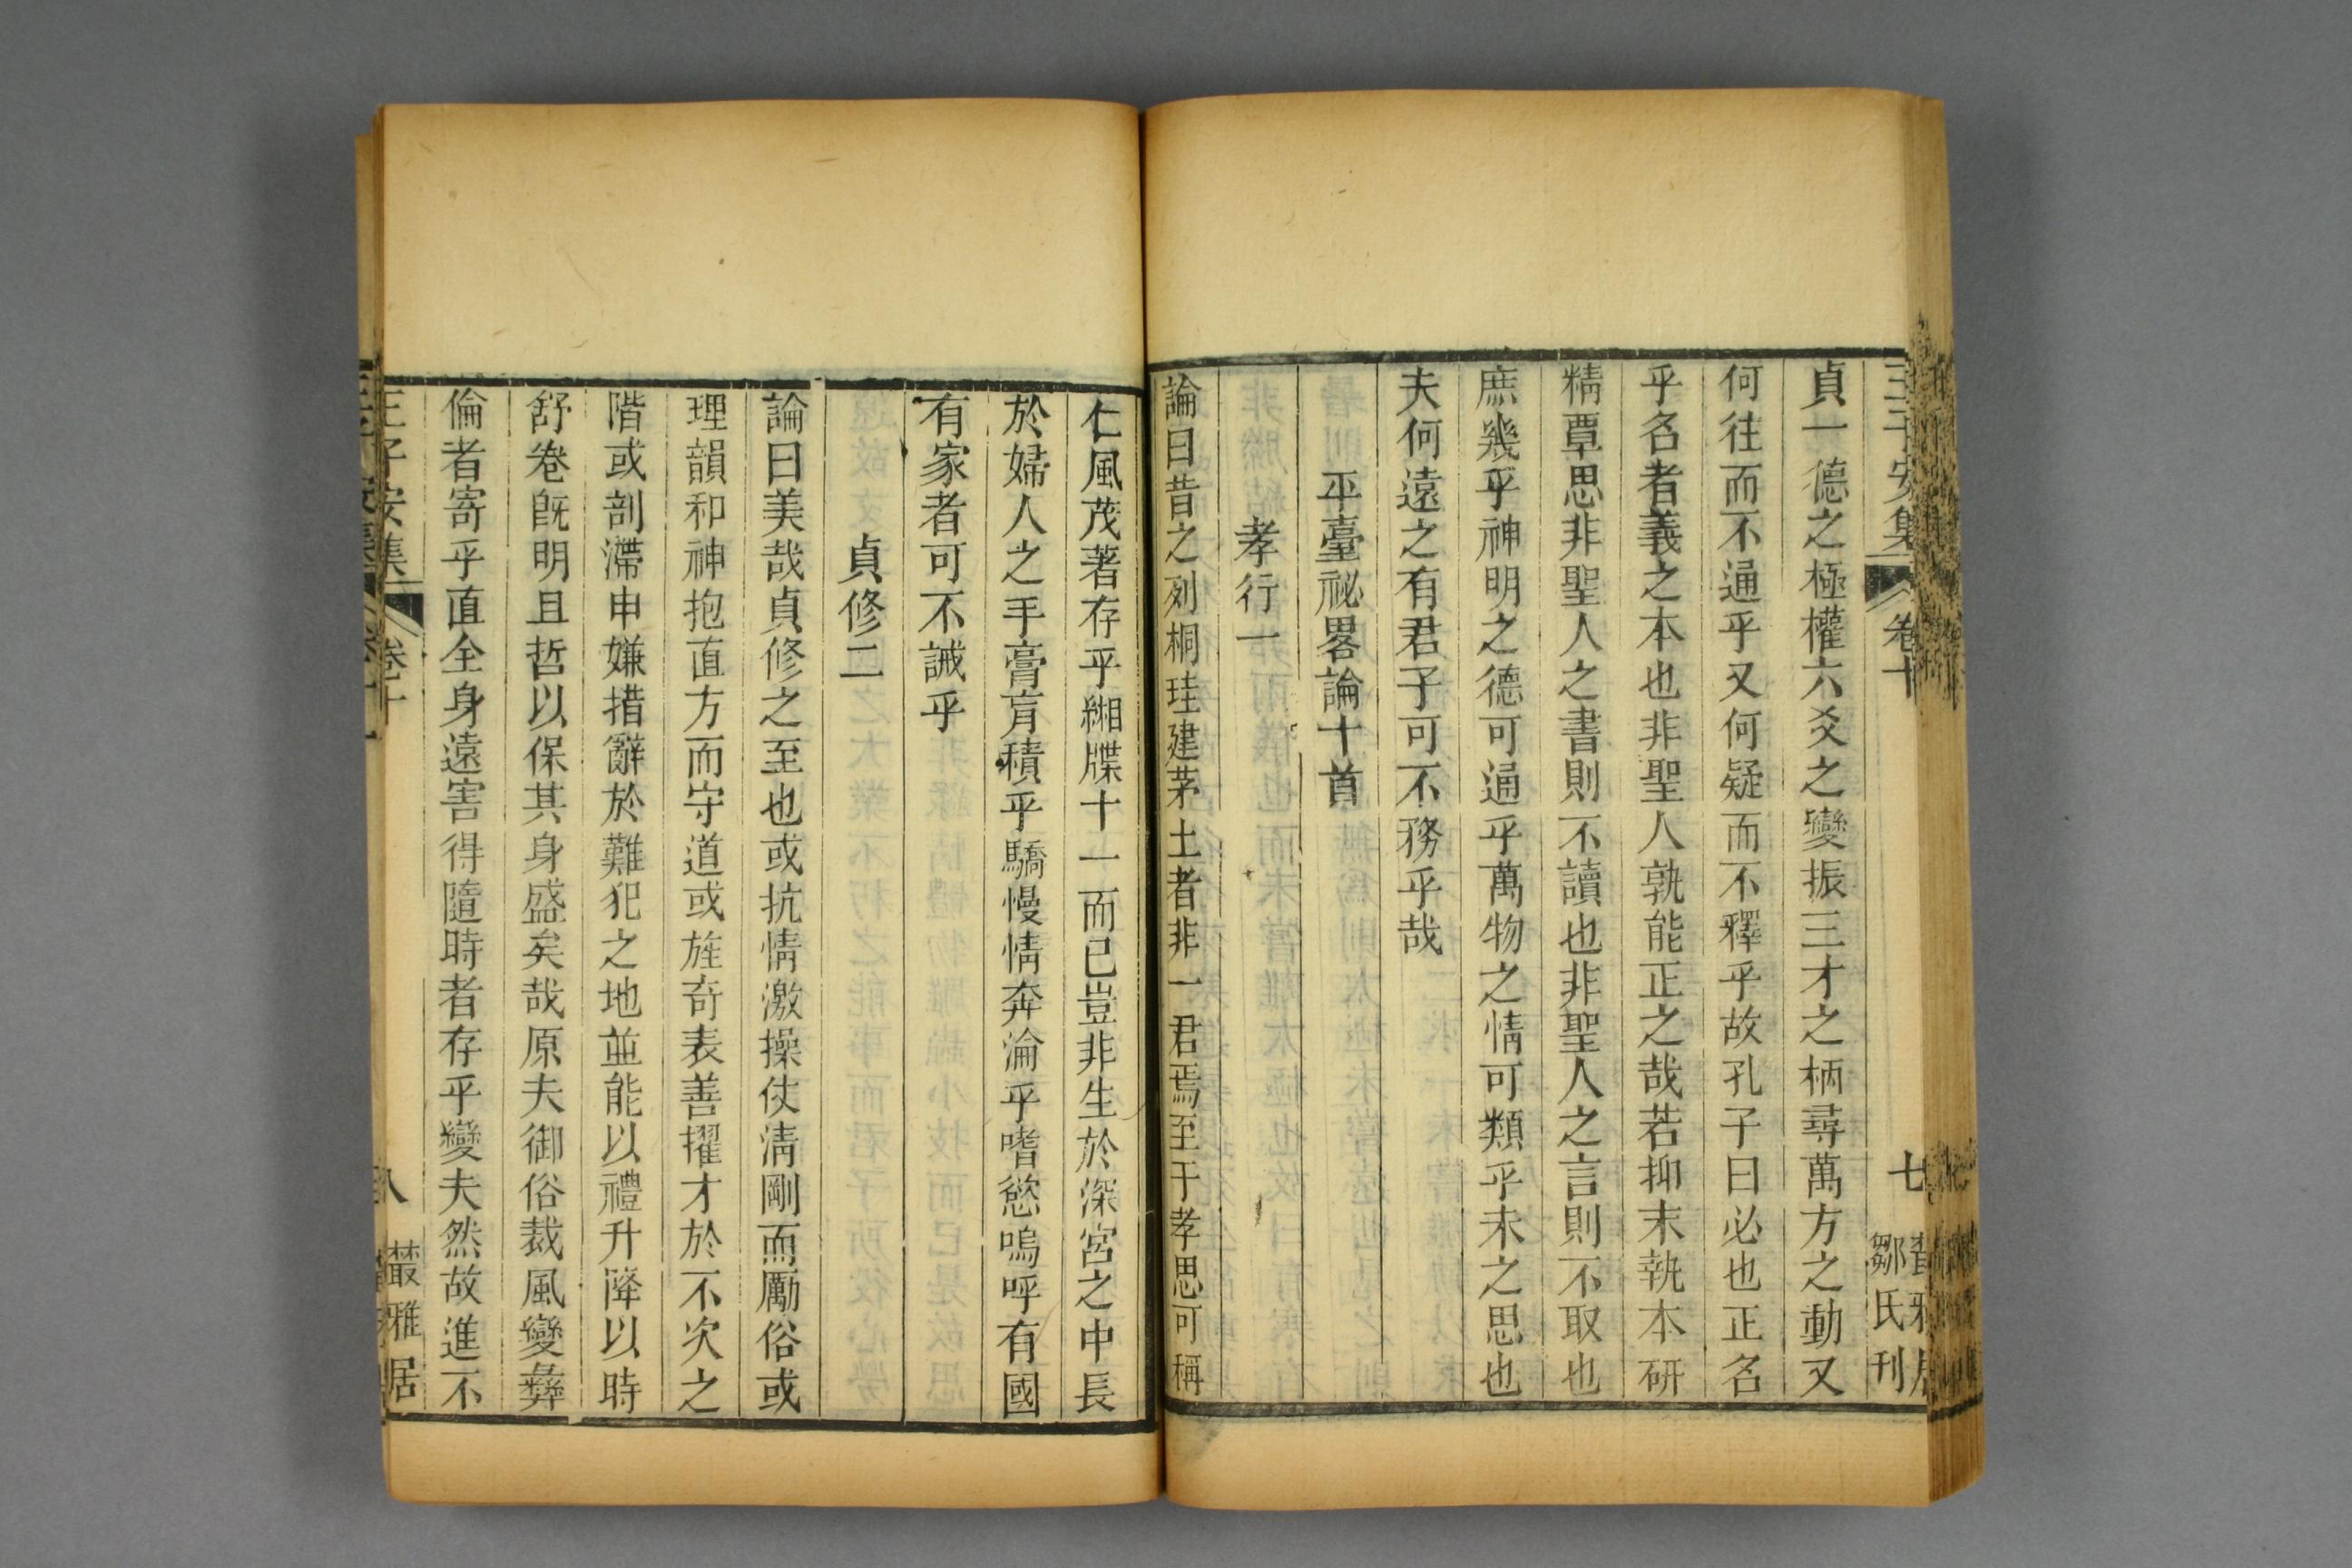 王子安集 卷十 七 鄒氏刊
貞一德之極權六爻之變振三才之柄尋萬方之動又
何往而不通乎又何疑而不釋乎故孔子曰必也正名
乎名者義之本也非聖人孰能正之哉若抑末執本研
精覃思非聖人之書則不讀也非聖人之言則不取也
庶幾乎神明之德可通乎萬物之情可類乎未之思也
夫何遠之有君子可不務乎哉
平臺祕畧論十首
孝行一
論曰昔之列桐珪建茅土者非一君焉至于孝思可稱
仁風茂著存乎緗牒十一而已豈非生於深宮之中長
於婦人之手膏肓積乎驕慢情奔淪乎嗜慾嗚呼有國
有家者可不誡乎
貞修二
論曰美哉貞修之至也或抗情激操仗淸剛而厲俗或
理韻和神抱直方而守道或旌奇表善擢才於不次之
階或剖滯申嫌措辭於難犯之地並能以禮升降以時
舒卷旣明且哲以保其身盛矣哉原夫御俗裁風變彝
倫者寄乎直全身遠害得隨時者存乎變夫然故進不
王子安集 卷十 八 叢雅居